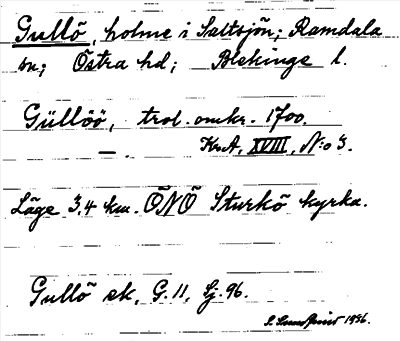 Gullö, holme i Saltsjön; Ramdala
sn; Östra hd; Blekinge l.
Güllöö, trol. omkr. 1700.
— . KrA, XVIII, N:o 3.
Läge 3,4 km. ÖNÖ Sturkö kyrka.
Gullö sk, G. 11, Sj. 96.
1956.